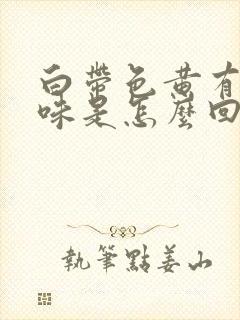 白帶色黄有
味是怎麼回
執筆點姜山